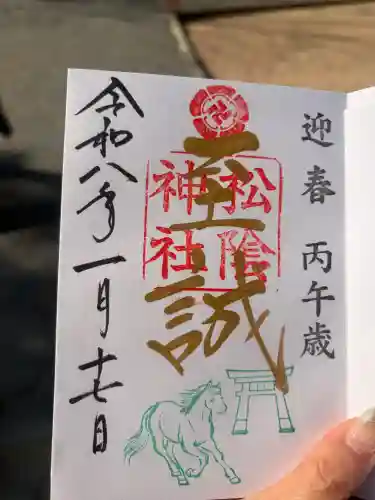 迎春 丙午歳
至誠
松陰
神社
令和八年一月十七日